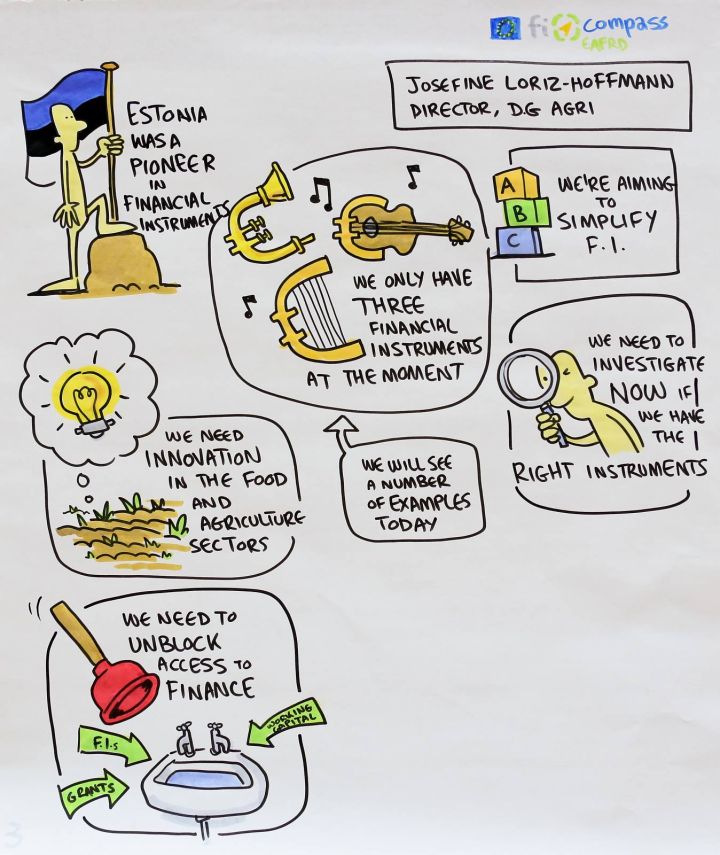 fi compass
EAFRD
JOSEFINE LORIZ-HOFFMANN
DIRECTOR, D.G AGRI
ESTONIA
WAS A
PIONEER
IN
FINANCIAL
INSTRUMENTS
WE ONLY HAVE
THREE
FINANCIAL
INSTRUMENTS
AT THE MOMENT
A
B
C
WE'RE AIMING
TO
SIMPLIFY
F.I.
WE NEED TO
INVESTIGATE
NOW IF
WE HAVE
THE
RIGHT INSTRUMENTS
WE WILL SEE
A NUMBER
OF EXAMPLES
TODAY
WE NEED
INNOVATION
IN THE FOOD
AND
AGRICULTURE
SECTORS
WE NEED TO
UNBLOCK
ACCESS TO
FINANCE
WORKING
CAPITAL
F.I.s
GRANTS
3